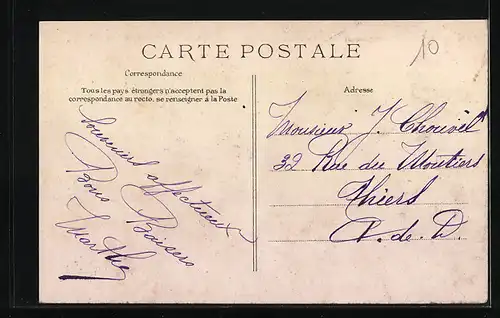 CARTE POSTALE
10
Correspondance
Tous les pays étrangers n'acceptent pas la
correspondance au recto, se renseigner à la Poste
Adresse
Souvenirs affectueux
Bons Baisers
Marthe
Monsieur J
32 Rue du Moutiers
Thiers
P. de D.